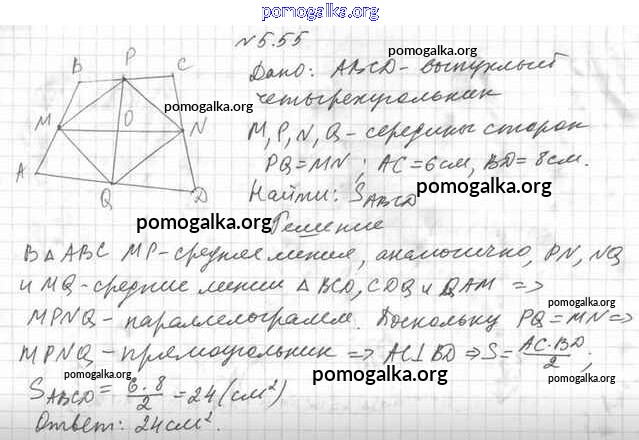 pomogalka.org
№5.55
pomogalka.org
Дано: ABCD - выпуклый
B P C
четырехугольник
pomogalka.org
M O N
M, P, N, Q - середины сторон
PQ = MN ; AC = 6 см, BD = 8 см.
A Q D
Найти: S ABCD
pomogalka.org
pomogalka.org
Решение
В △ ABC MP - средняя линия, аналогично, PN, NQ
и MQ - средние линии △ BCD, CDQ и QAM =>
pomogalka.org
MPNQ - параллелограмм. Поскольку PQ = MN =>
MPNQ - прямоугольник => AC ⊥ BD => S = AC·BD/2 ;
pomogalka.org
pomogalka.org
pomogalka.org
S ABCD = 6·8/2 = 24 (см²)
Ответ: 24 см².